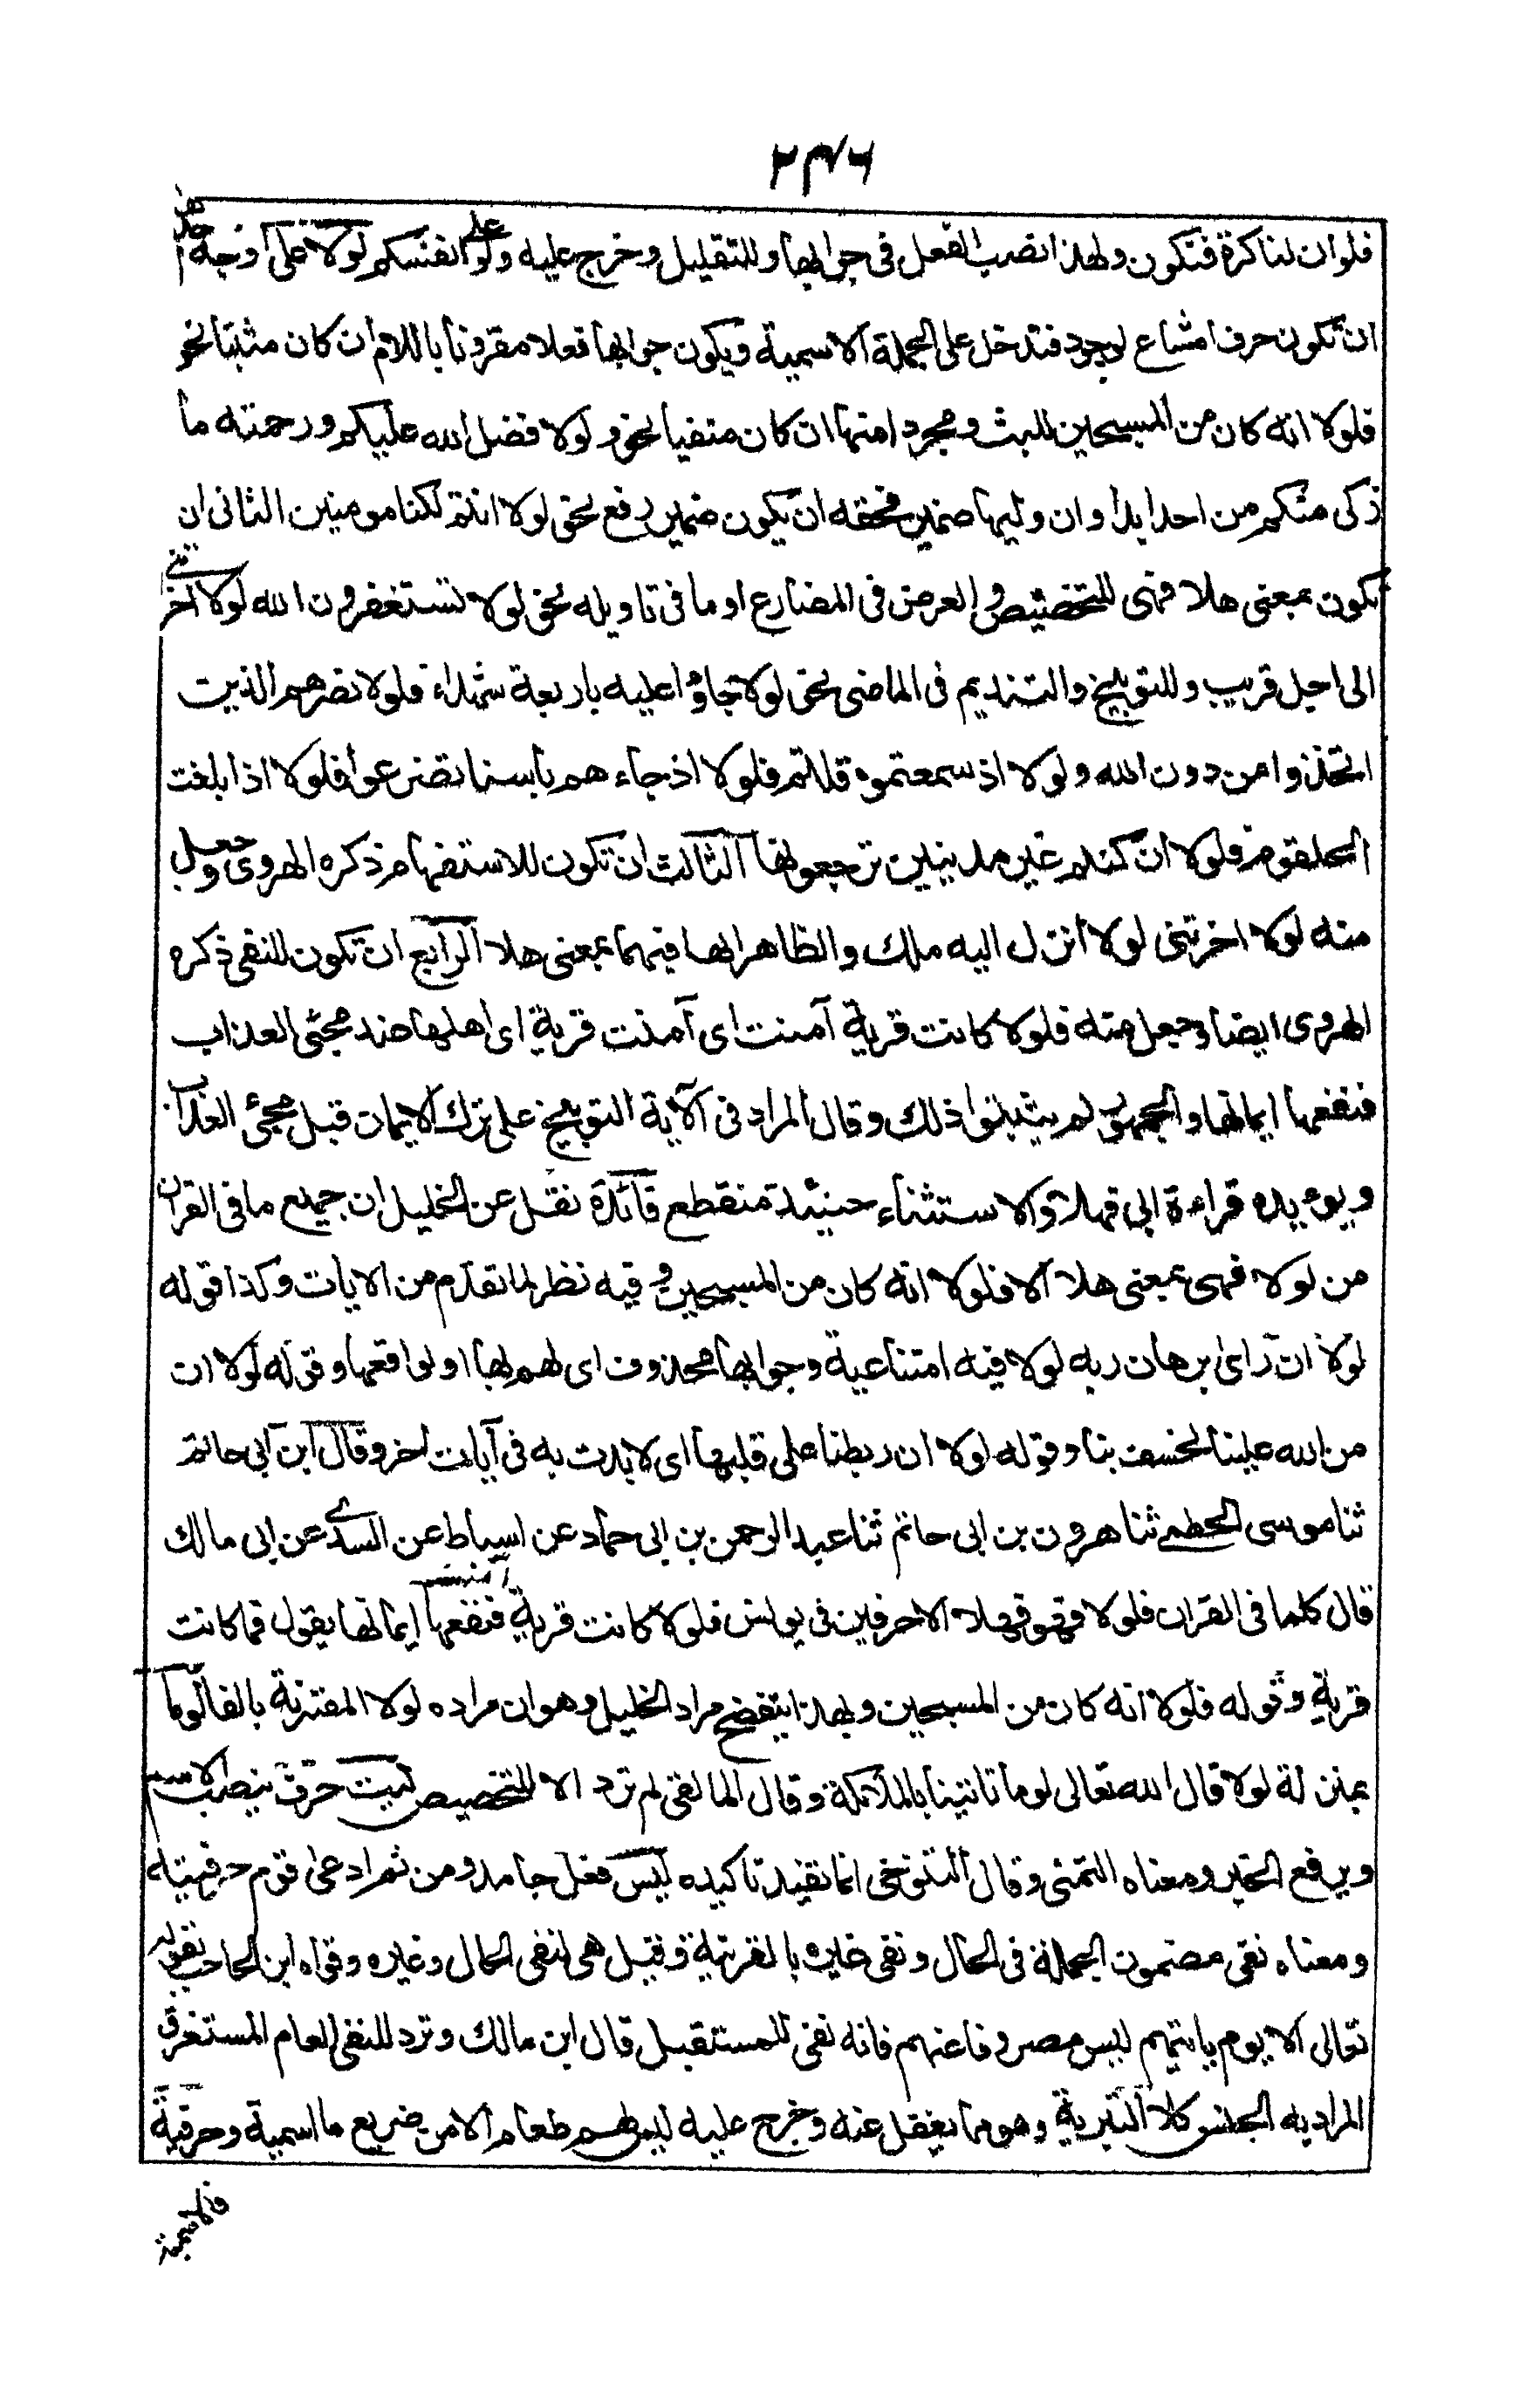 ٢٣٦
فلو ان لنا كرة فنكون ولهذا نصب الفعل فى جوابها وللتقليل وخرج عليه ولو على انفسكم لولا على اوجه احدها
ان تكون حرف امتناع لوجود فتدخل على الجملة الاسمية ويكون جوابها فعلا مقرونا باللام ان كان مثبتا نحو
فلولا انه كان من المسبحين للبث ومجردا منها ان كان منفيا نحو ولولا فضل الله عليكم ورحمته ما
زكى منكم من احد ابدا وان وليها ضمير فحقه ان يكون ضمير رفع نحو لولا انتم لكنا مومنين الثانى ان
تكون بمعنى هلا فهى للتخضيض والعرض فى المضارع او ما فى تاويله نحو لولا تستغفرون الله لولا اخرتنى
الى اجل قريب وللتوبيخ والتنديم فى الماضى نحو لولا جاؤا عليه باربعة شهداء فلولا نصرهم الذين
اتخذوا من دون الله ولولا اذ سمعتموه قلتم فلولا اذ جاءهم باسنا تضرعوا فلولا اذا بلغت
الحلقوم فلولا ان كنتم غير مدينين ترجعونها الثالث ان تكون للاستفهام ذكره الهروى وجعل
منه لولا اخرتنى لولا انزل اليه ملك والظاهر انها فيهما بمعنى هلا الرابع ان تكون للنفى ذكره
الهروى ايضا وجعل منه فلولا كانت قرية آمنت اى آمنت قرية اى اهلها عند مجئى العذاب
فنفعها ايمانها والجمهور لم يثبتوا ذلك وقال المراد فى الآية التوبيخ على ترك الايمان قبل مجئ العذاب
ويوءيده قراءة ابى فهلا والاستثناء حينئذ منقطع فائدة نقل عن الخليل ان جميع ما فى القران
من لولا فهى بمعنى هلا الا فلولا انه كان من المسبحين وفيه نظر لما تقدم من الايات وكذا قوله
لولا ان راى برهان ربه لولا فيه امتناعية وجوابها محذوف اى لهم بها او لواقعها وقوله لولا ان
من الله علينا لخسف بنا وقوله لولا ان ربطنا على قلبها اى لابدت به فى آيات اخر وقال ابن ابى حاتم
ثنا موسى الخطمى ثنا هرون بن ابى حاتم ثنا عبد الرحمن بن ابى حماد عن اسباط عن السدى عن ابى مالك
قال كلما فى القران فلولا فهو فهلا الا حرفين فى يونس فلولا كانت قرية آمنت فنفعها ايمانها يقول فما كانت
قرية وقوله فلولا انه كان من المسبحين وبهذا يتضح مراد الخليل وهو ان مراده لولا المقترنة بالفا لوما
بمنزلة لولا قال الله تعالى لوما تاتينا بالملائكة وقال المالقى لم ترد الا للتخصيص ليت حرف ينصب الاسم
ويرفع الخبر ومعناه التمنى وقال التنوخى انما تفيد تاكيده ليس فعل جامد ومن ثم ادعى قوم حرفيته
ومعناه نفى مضمون الجملة فى الحال ونفى غيره بالقرينة وقيل هى لنفى الحال وغيره وقواه ابن الحاجب بقوله
تعالى الا يوم ياتيهم ليس مصروفا عنهم فانه نفى للمستقبل قال ابن مالك وترد للنفى العام المستغرق
المراد به الجنس كلا التبرية وهو مما يغفل عنه وخرج عليه ليس لهم طعام الا من ضريع ما اسمية وحرفية
فالاسمية